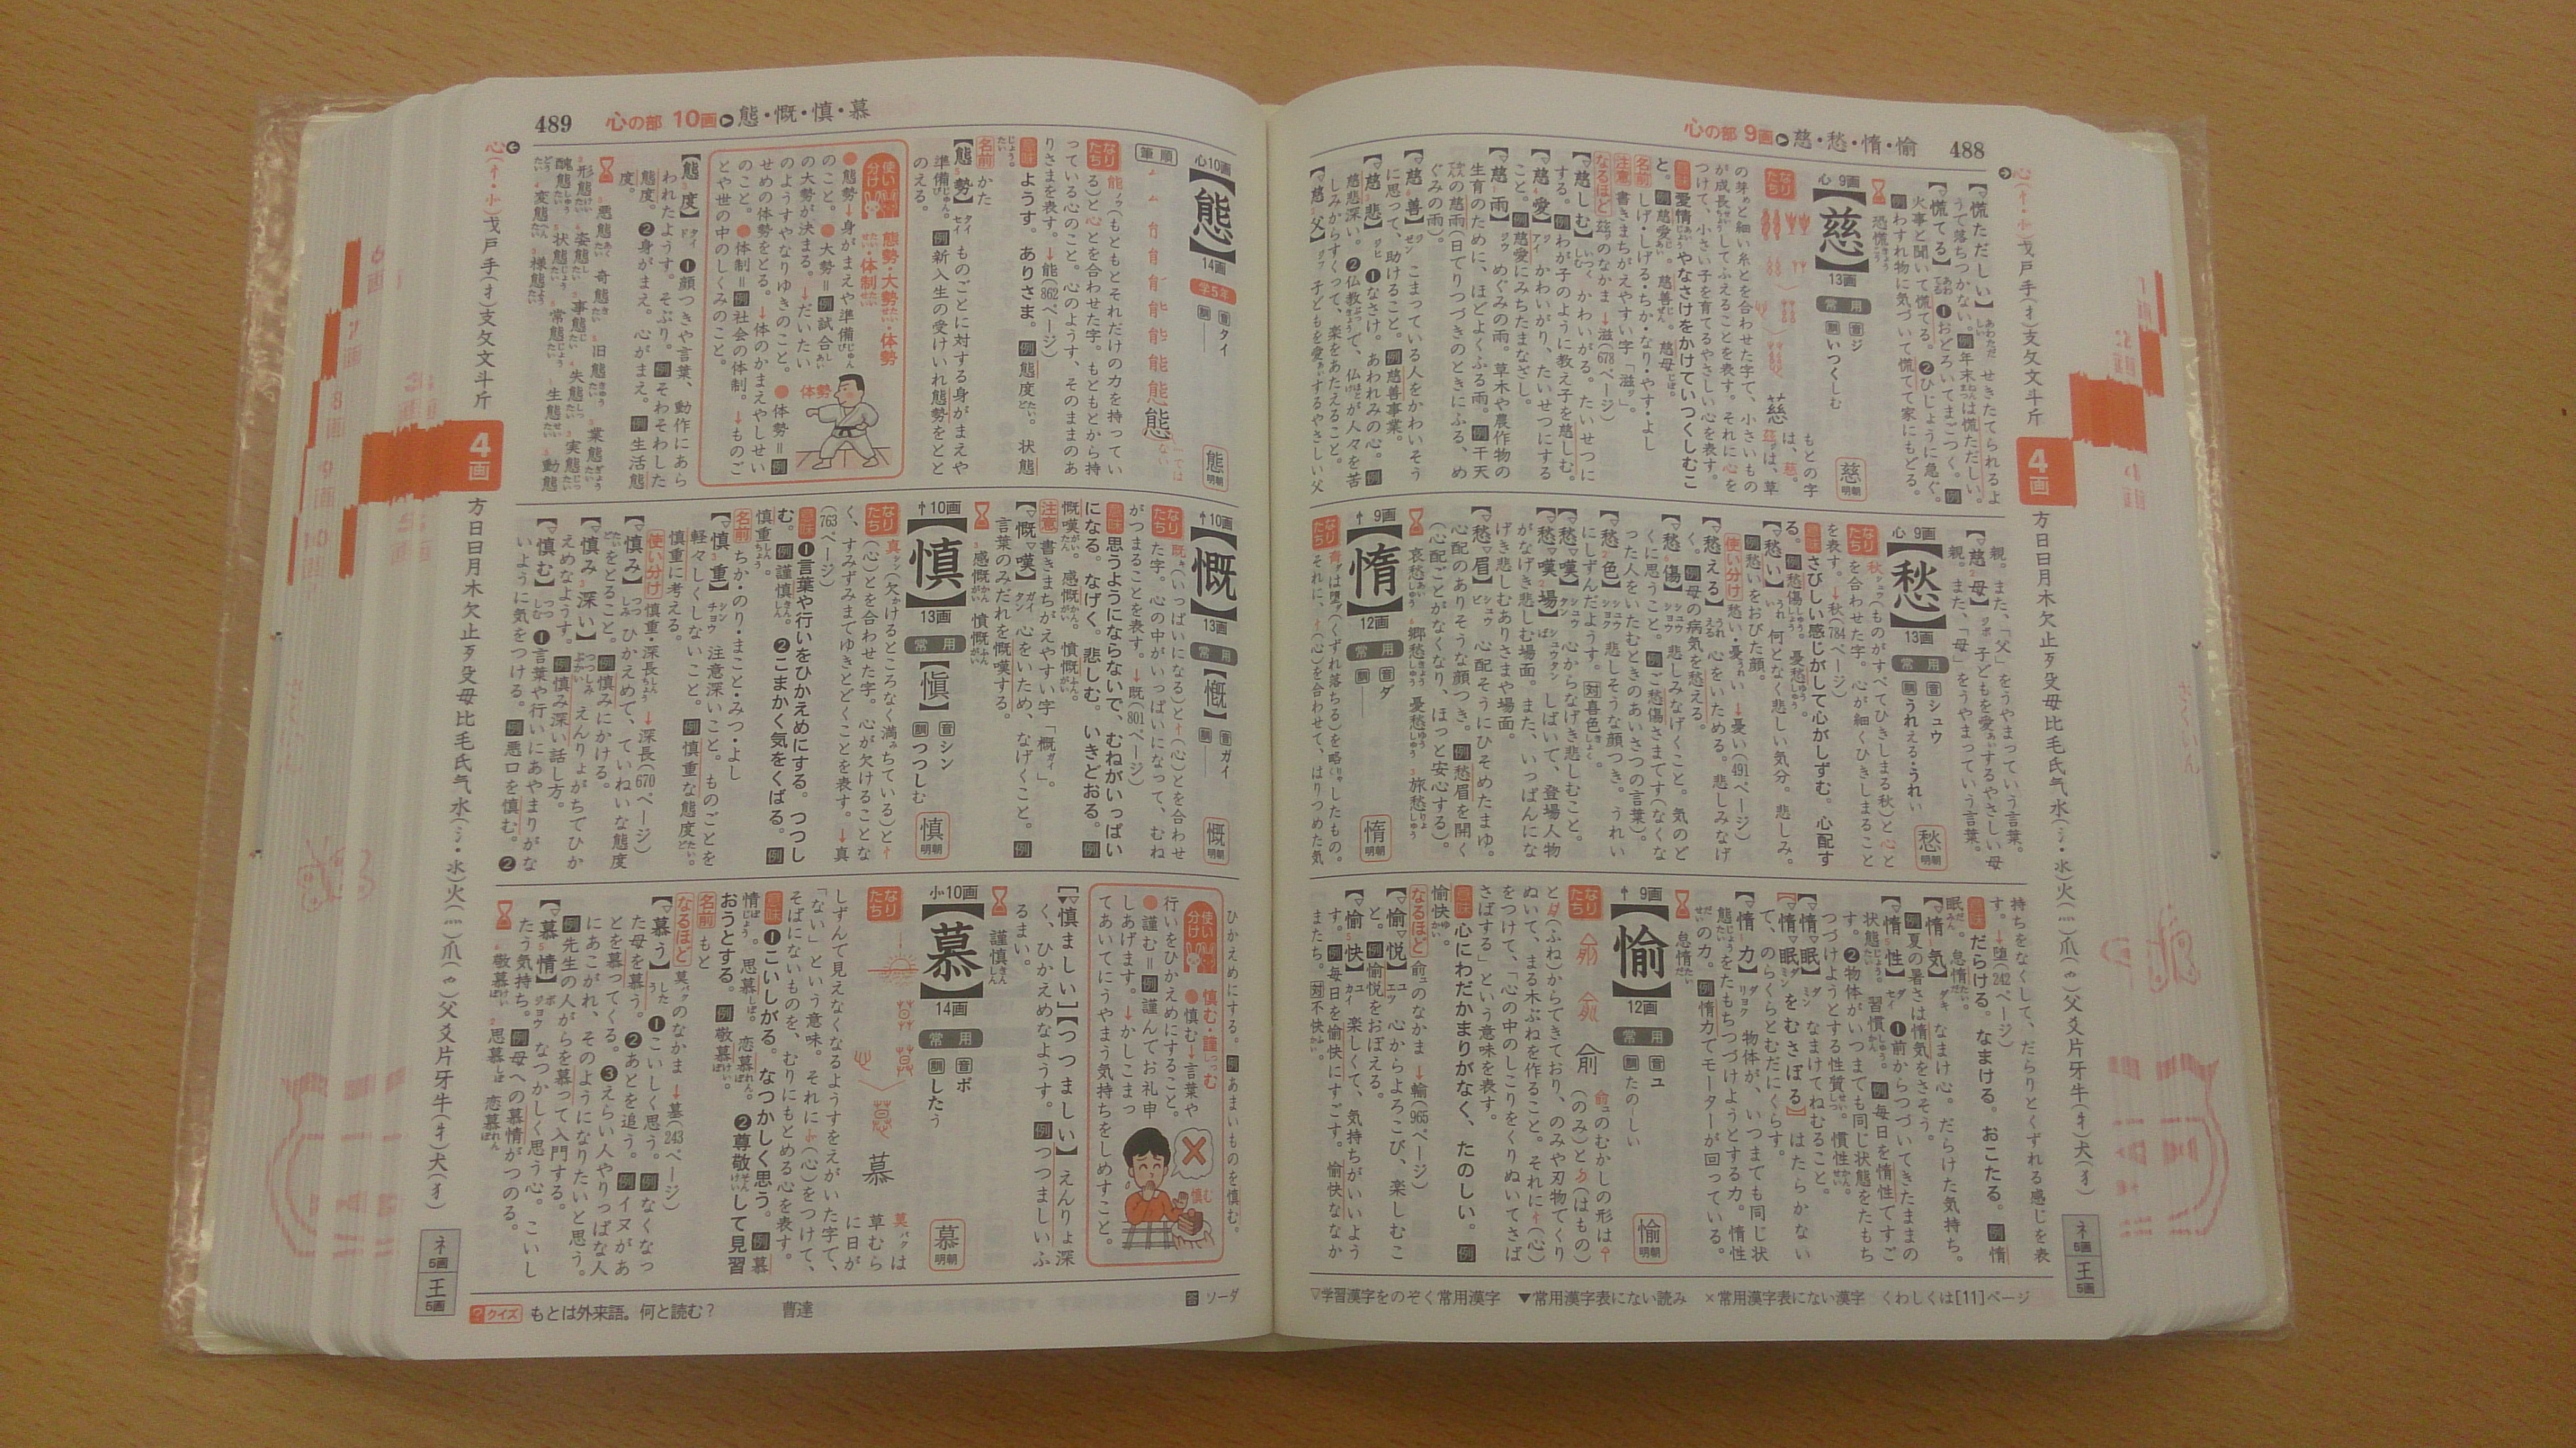 488
心の部 9画▶慈・愁・惰・愉
【慌ただしい】あわただしい せきたてられるよ
うで落ちつかない。例年末は慌ただしい。
【慌てる】あわてる ❶おどろいてまごつく。例
火事と聞いて慌てる。❷ひじょうに急ぐ。
例わすれ物に気づいて慌てて家にもどる。
恐慌
心 9画
【慈】
13画
常用
音ジ
訓いつくしむ
慈 明朝
なりたち
もとの字
は、慈。
玆は、草
の芽と細い糸とを合わせた字で、小さいもの
が成長してふえることを表す。それに心を
つけて、小さい子を育てるやさしい心を表す。
意味 愛情やなさけをかけていつくしむこ
と。例慈愛。慈善。慈母。
名前 しげ・しげる・ちか・なり・やす・よし
注意 書きまちがえやすい字「滋」。
なるほど 玆のなかま →滋(678ページ)
【慈しむ】いつくしむ かわいがる。たいせつに
する。例わが子のように教え子を慈しむ。
【慈愛】ジアイ かわいがり、たいせつにする
こと。例慈愛にみちたまなざし。
【慈雨】ジウ めぐみの雨。草木や農作物の
生育のために、ほどよくふる雨。例干天
の慈雨(日でりつづきのときにふる、め
ぐみの雨)。
【慈善】ジゼン こまっている人をかわいそう
に思って、助けること。例慈善事業。
【慈悲】ジヒ ❶なさけ。あわれみの心。例
慈悲深い。❷仏教で、仏が人々を苦
しみからすくって、楽をあたえること。
【慈父】ジフ 子どもを愛するやさしい父
親。また、「父」をうやまっていう言葉。
【慈母】ジボ 子どもを愛するやさしい母
親。また、「母」をうやまっていう言葉。
心 9画
【愁】
13画
常用
音シュウ
訓うれえる・うれい
愁 明朝
なりたち 秋(ものがすべてひきしまる秋)と心と
を合わせた字。心が細くひきしまること
を表す。→秋(784ページ)
意味 さびしい感じがして心がしずむ。心配す
る。例愁傷。憂愁。
【愁い】うれい 何となく悲しい気分。悲しみ。
例愁いをおびた顔。
使い分け 愁い・憂い→憂い(491ページ)
【愁える】うれえる 心をいためる。悲しみなげ
く。例母の病気を愁える。
【愁傷】シュウショウ 悲しみなげくこと。気のど
くに思うこと。例ご愁傷さまです(なくな
った人をいたむときのあいさつの言葉)。
【愁色】シュウショク 悲しそうな顔つき。うれい
にしずんだようす。対喜色。
【愁嘆】シュウタン 心からなげき悲しむこと。
【愁嘆場】シュウタンば しばいで、登場人物
がなげき悲しむ場面。また、いっぱんにな
げき悲しむありさまや場面。
【愁眉】シュウビ 心配そうにひそめたまゆ。
心配のありそうな顔つき。例愁眉を開く
(心配ごとがなくなり、ほっと安心する)。
哀愁 郷愁 憂愁 旅愁
忄 9画
【惰】
12画
常用
音ダ
訓――
惰 明朝
それに、忄(心)を合わせて、はりつめた気
持ちをなくして、だらりとくずれる感じを表
す。→堕(242ページ)
意味 だらける。なまける。おこたる。例惰
眠。怠惰。
【惰気】ダキ なまけ心。だらけた気持ち。
例夏の暑さは惰気をさそう。
【惰性】ダセイ ❶前からつづいてきたままの
状態。習慣。例毎日を惰性ですご
す。❷物体がいつまでも同じ状態をたもち
つづけようとする性質。慣性。
【惰眠】ダミン なまけてねむること。
【惰眠をむさぼる】 はたらかない
で、のらくらとむだにくらす。
【惰力】ダリョク 物体が、いつまでも同じ状
態をたもちつづけようとする力。惰性
の力。例惰力でモーターが回っている。
怠惰
忄 9画
【愉】
12画
常用
音ユ
訓たの-しい
愉 明朝
なりたち
兪のむかしの形は
(のみ)と(はもの)
と(ふね)からできており、のみや刃物でくり
ぬいて、まる木ぶねを作ること。それに忄(心)
をつけて、「心の中のしこりをくりぬいてさば
さばする」という意味を表す。
意味 心にわだかまりがなく、たのしい。例
愉快。
なるほど 兪のなかま →輸(965ページ)
【愉悦】ユエツ 心からよろこび、楽しむこ
と。例愉悦をおぼえる。
【愉快】ユカイ 楽しくて、気持ちがいいよう
す。例毎日を愉快にすごす。愉快ななか
またち。対不快。
▽学習漢字をのぞく常用漢字 ▼常用漢字表にない読み ×常用漢字表にない漢字 くわしくは[11]ページ
心(忄・㣺)戈戸手(扌)支攵文斗斤
4画
方日曰月木欠止歹殳毋比毛氏气水(氵・氺)火(灬)爪(爫)父爻片牙牛(牜)犬(犭)
ネ 5画
王 5画
489
心の部 10画▶態・慨・慎・慕
心 10画
【態】
14画
学5年
音タイ
訓――
態 明朝
筆順
なりたち 能(もともとそれだけの力を持ってい
る)と心とを合わせた字。もともとから持
っている心のこと。心のようす、そのままのあ
りさまを表す。→能(862ページ)
意味 ようす。ありさま。例態度。状態。
名前 かた
【態勢】タイセイ ものごとに対する身がまえや
準備。例新入生の受けいれ態勢をとと
のえる。
使い分け 態勢・大勢・体勢・体制
●態勢→身がまえや準備
のこと。●大勢=例試合
の大勢が決まる。→だいたい
のようすやなりゆきのこと。●体勢=例
せめの体勢をとる。→体のかまえやしせい
のこと。●体制=例社会の体制。→ものご
とや世の中のしくみのこと。
体勢
【態度】タイド ❶顔つきや言葉、動作にあら
われたようす。そぶり。例そわそわした
態度。❷身がまえ。心がまえ。例生活態
度。
悪態 奇態 旧態 業態
形態 姿態 事態 失態 実態
醜態 状態 常態 生態 動態
変態 様態
忄 10画
【慨】
13画
常用
【慨】
音ガイ
訓――
慨 明朝
なりたち 既(いっぱいになる)と忄(心)とを合わせ
た字。心の中がいっぱいになって、むね
がつまることを表す。→既(801ページ)
意味 思うようにならないで、むねがいっぱい
になる。なげく。悲しむ。いきどおる。例
慨嘆。感慨。憤慨。
注意 書きまちがえやすい字「概」。
【慨嘆】ガイタン 心をいため、なげくこと。例
言葉のみだれを慨嘆する。
感慨 憤慨
忄 10画
【慎】
13画
常用
【愼】
音シン
訓つつしむ
慎 明朝
なりたち 真(欠けるところなく満ちている)と忄
(心)とを合わせた字。心が欠けることな
く、すみずみまでゆきとどくことを表す。→真
(763ページ)
意味 ❶言葉や行いをひかえめにする。つつし
む。例謹慎。❷こまかく気をくばる。例
慎重。
名前 ちか・のり・まこと・みつ・よし
【慎重】シンチョウ 注意深いこと。ものごとを
軽々しくしないこと。例慎重な態度。
慎重に考える。
使い分け 慎重・深長→深長(670ページ)
【慎み】つつしみ ひかえめで、ていねいな態度
をとること。例慎みにかける。
【慎み深い】つつしみぶかい えんりょがちでひか
えめなようす。例慎み深い話し方。
【慎む】つつしむ ❶言葉や行いにあやまりがな
いように気をつける。例悪口を慎む。❷
ひかえめにする。例あまいものを慎む。
使い分け 慎む・謹む
●慎む→言葉や
行いをひかえめにすること。
●謹む=例謹んでお礼申
しあげます。→かしこまっ
てあいてにうやまう気持ちをしめすこと。
慎む
【慎ましい】【つつましい】 えんりょ深
く、ひかえめなようす。例つつましいふ
るまい。
謹慎
㣺 10画
【慕】
14画
常用
音ボ
訓したう
慕 明朝
なりたち
莫は
草むら
に日が
しずんで見えなくなるようすをえがいた字で、
「ない」という意味。それに㣺(心)をつけて、
そばにないものを、むりにもとめる心を表す。
意味 ❶こいしがる。なつかしく思う。例慕
情。思慕。恋慕。❷尊敬して見習
おうとする。例敬慕。
名前 もと
なるほど 莫のなかま →墓(243ページ)
【慕う】したう ❶こいしく思う。例なくなっ
た母を慕う。❷あとを追う。例イヌがあ
とを慕ってくる。❸えらい人やりっぱな人
にあこがれ、そのようになりたいと思う。
例先生の人がらを慕って入門する。
【慕情】ボジョウ なつかしく思う心。こいし
たう気持ち。例母への慕情がつのる。
敬慕 思慕 恋慕
クイズ もとは外来語。何と読む? 曹達
答 ソーダ
心(忄・㣺)戈戸手(扌)支攵文斗斤
4画
方日曰月木欠止歹殳毋比毛氏气水(氵・氺)火(灬)爪(爫)父爻片牙牛(牜)犬(犭)
ネ 5画
王 5画